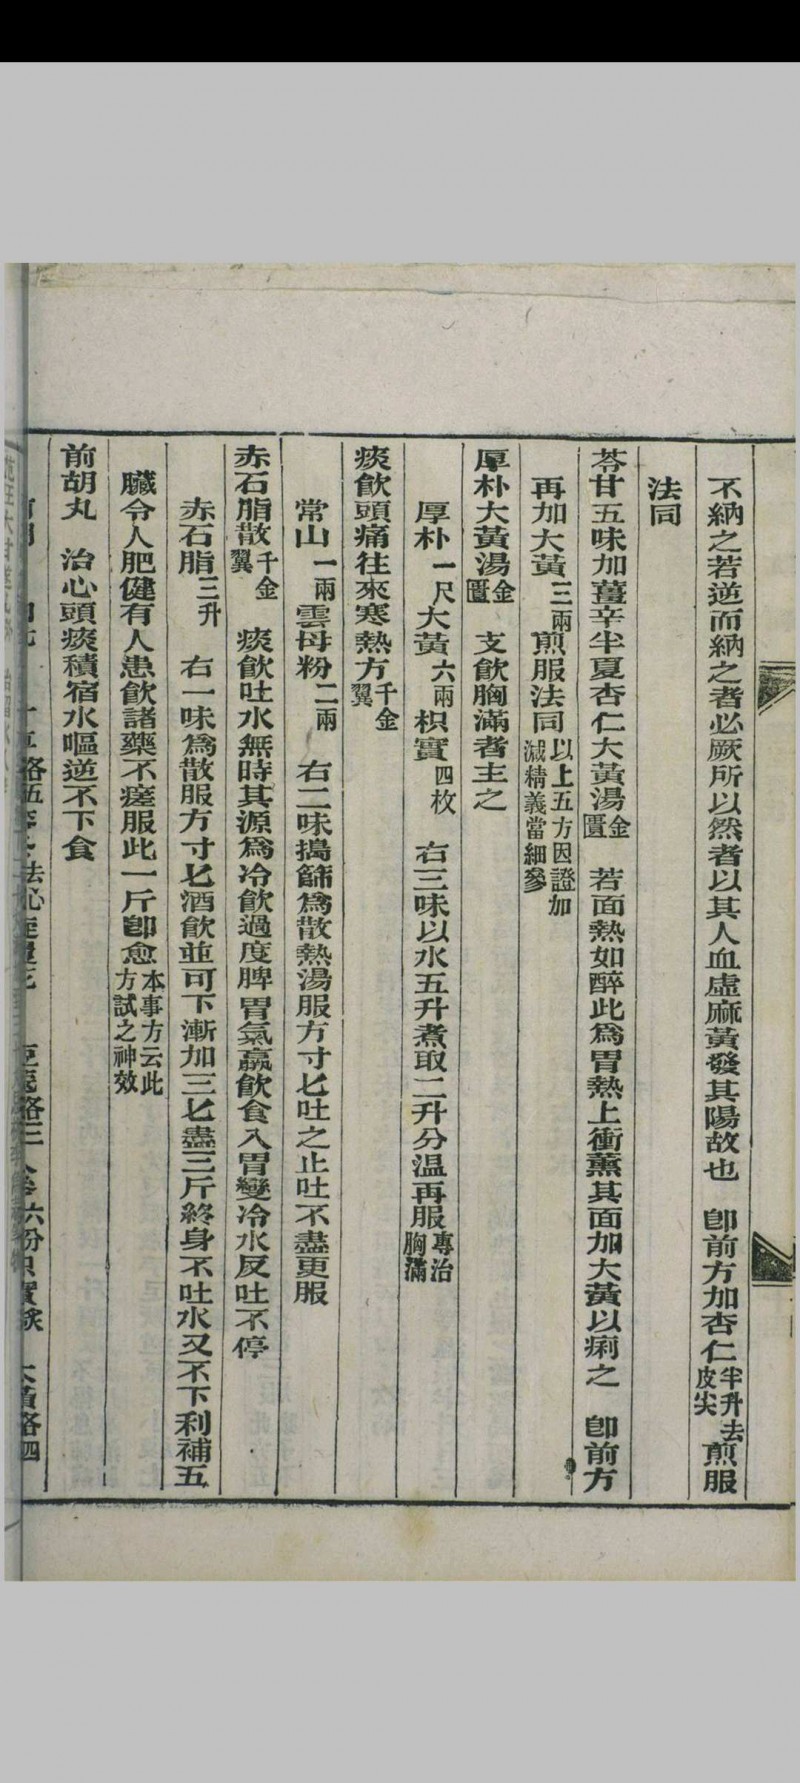 不納之若逆而納之者必厥所以然者以其人血虛麻黃發其陽故也　卽前方加杏仁半升去皮尖煎服
法同
苓甘五味加薑辛半夏杏仁大黃湯金匱　若面熱如醉此爲胃熱上衝薰其面加大黃以痢之　卽前方
再加大黃三兩煎服法同以上五方因證加減精義當細參
厚朴大黃湯金匱　支飲胸滿者主之
厚朴一尺大黃六兩枳實四枚　右三味以水五升煮取二升分溫再服專治胸滿
痰飲頭痛往來寒熱方千金翼
常山一兩雲母粉二兩　右二味搗篩爲散熱湯服方寸匕吐之止吐不盡更服
赤石脂散千金翼　痰飲吐水無時其源爲冷飲過度脾胃氣羸飲食入胃變冷水反吐不停
赤石脂三升　右一味爲散服方寸匕酒飲並可下漸加三匕盡三斤終身不吐水又不下利補五
臟令人肥健有人患飲諸藥不瘥服此一斤卽愈本事方云此方試之神效
前胡丸　治心頭痰積宿水嘔逆不下食